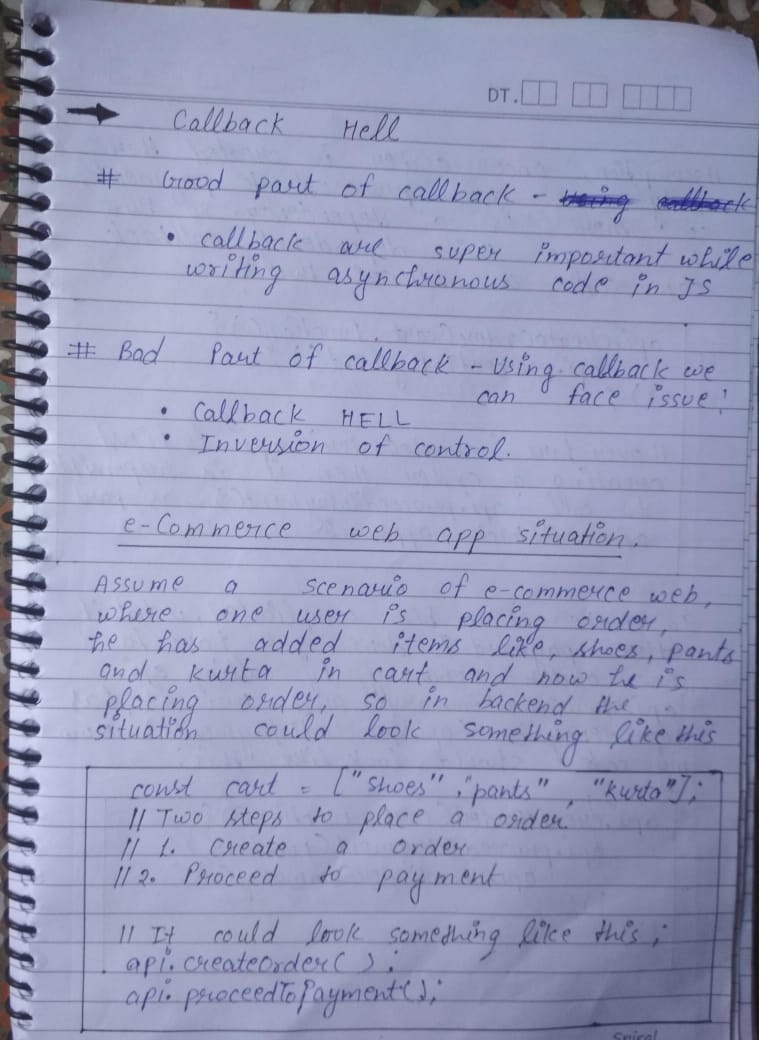 DT.
Callback Hell
# Good part of callback - using callback
• callback are super important while
writing asynchronous code in JS
# Bad Part of callback - Using callback we
can face issue:
• Callback HELL
• Inversion of control.
e-Commerce web app situation.
Assume a scenario of e-commerce web,
where one user is placing order,
he has added items like, shoes, pants
and kurta in cart and now he is
placing order, so in backend the
situation could look something like this
const cart = ["shoes", "pants", "kurta"];
// Two steps to place a order
// 1. Create a order
// 2. Proceed to payment
// It could look something like this;
api.createOrder();
api.proceedToPayment();
Spiral